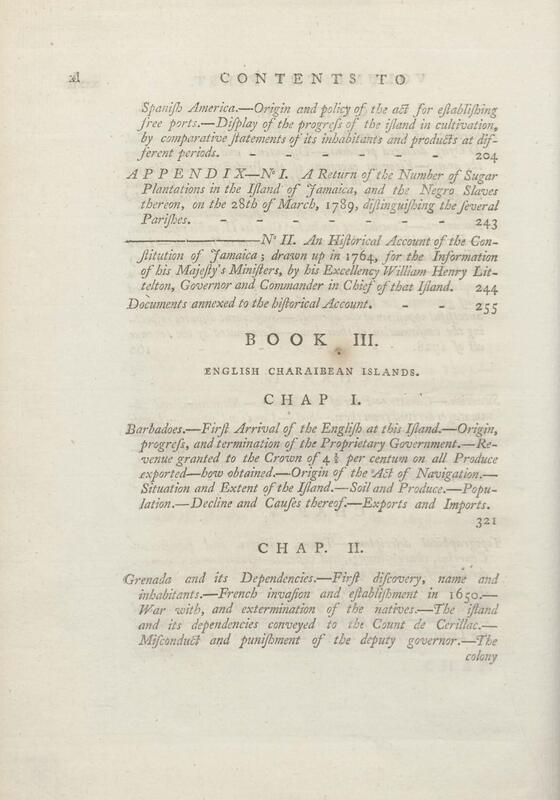 xl
CONTENTS TO
Spaniſh America.—Origin and policy of the act for eſtabliſhing
free ports.—Diſplay of the progreſs of the iſland in cultivation,
by comparative ſtatements of its inhabitants and products at dif-
ferent periods. - - - - - - 204
APPENDIX—No I. A Return of the Number of Sugar
Plantations in the Iſland of Jamaica, and the Negro Slaves
thereon, on the 28th of March, 1789, diſtinguiſhing the ſeveral
Pariſhes. - - - - - - - - 243
——————No II. An Hiſtorical Account of the Con-
ſtitution of Jamaica; drawn up in 1764, for the Information
of his Majeſty's Miniſters, by his Excellency William Henry Lit-
telton, Governor and Commander in Chief of that Iſland. 244
Documents annexed to the hiſtorical Account. - - 255
BOOK III.
ENGLISH CHARAIBEAN ISLANDS.
CHAP I.
Barbadoes.—Firſt Arrival of the Engliſh at this Iſland.—Origin,
progreſs, and termination of the Proprietary Government.—Re-
venue granted to the Crown of 4½ per centum on all Produce
exported—how obtained.—Origin of the Act of Navigation.—
Situation and Extent of the Iſland.—Soil and Produce.—Popu-
lation.—Decline and Cauſes thereof.—Exports and Imports.
321
CHAP. II.
Grenada and its Dependencies.—Firſt diſcovery, name and
inhabitants.—French invaſion and eſtabliſhment in 1650.—
War with, and extermination of the natives.—The iſland
and its dependencies conveyed to the Count de Cerillac.—
Miſconduct and puniſhment of the deputy governor.—The
colony